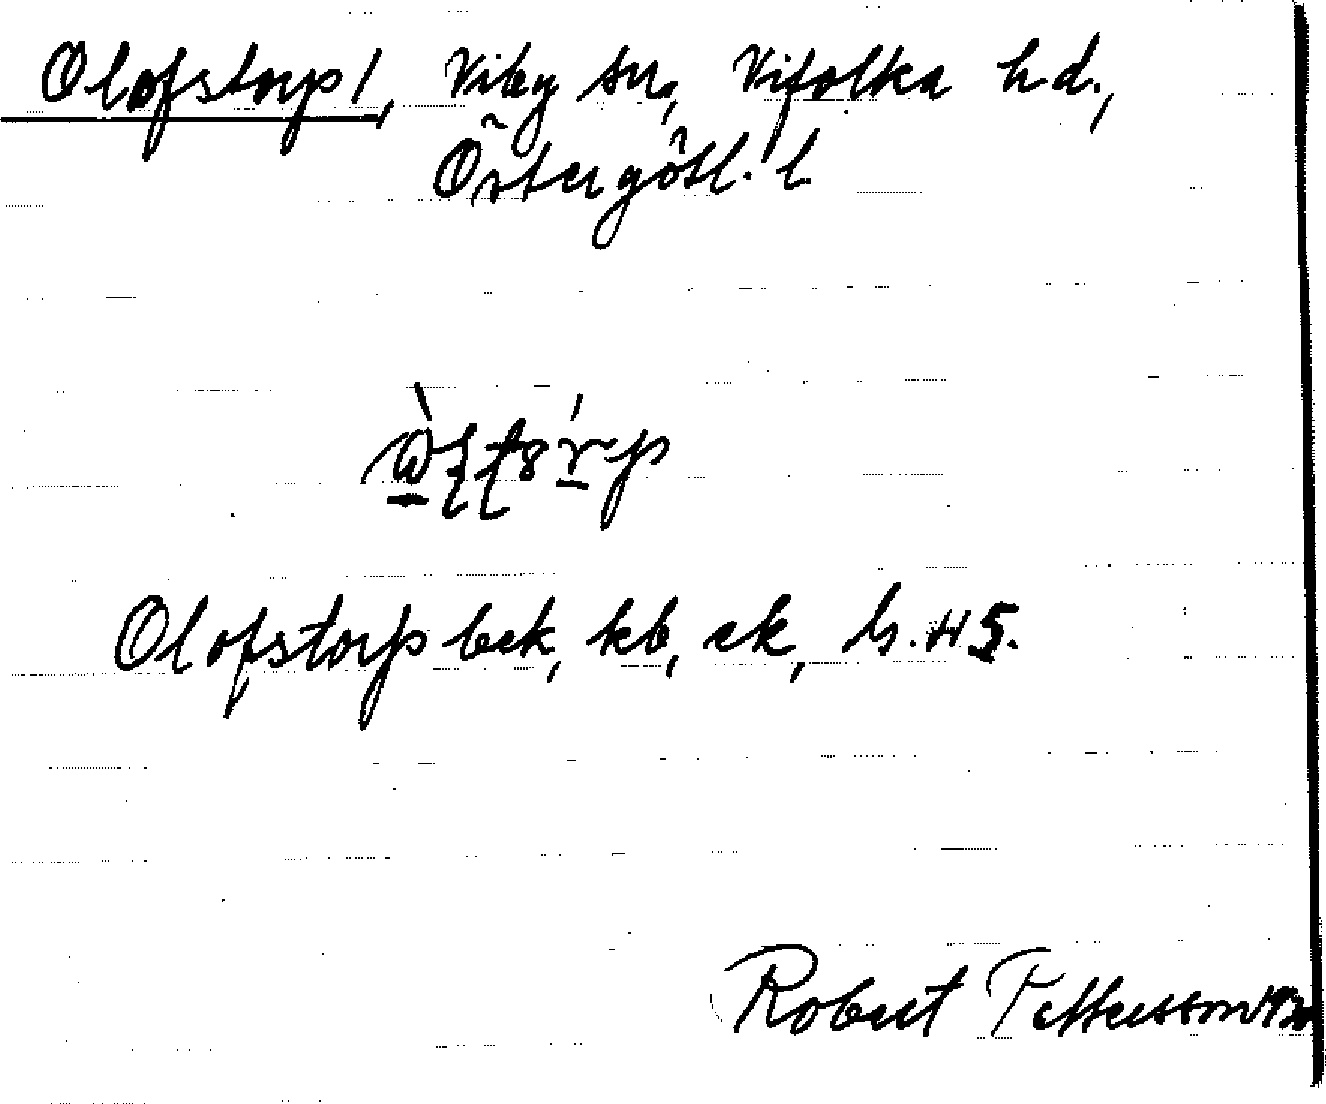 Olofstorp 1, Viby sn, Vifolka hd.,
Östergötl. l.
Olofstorp bek, kb, ek, hs. H5.
Robert Pettersson